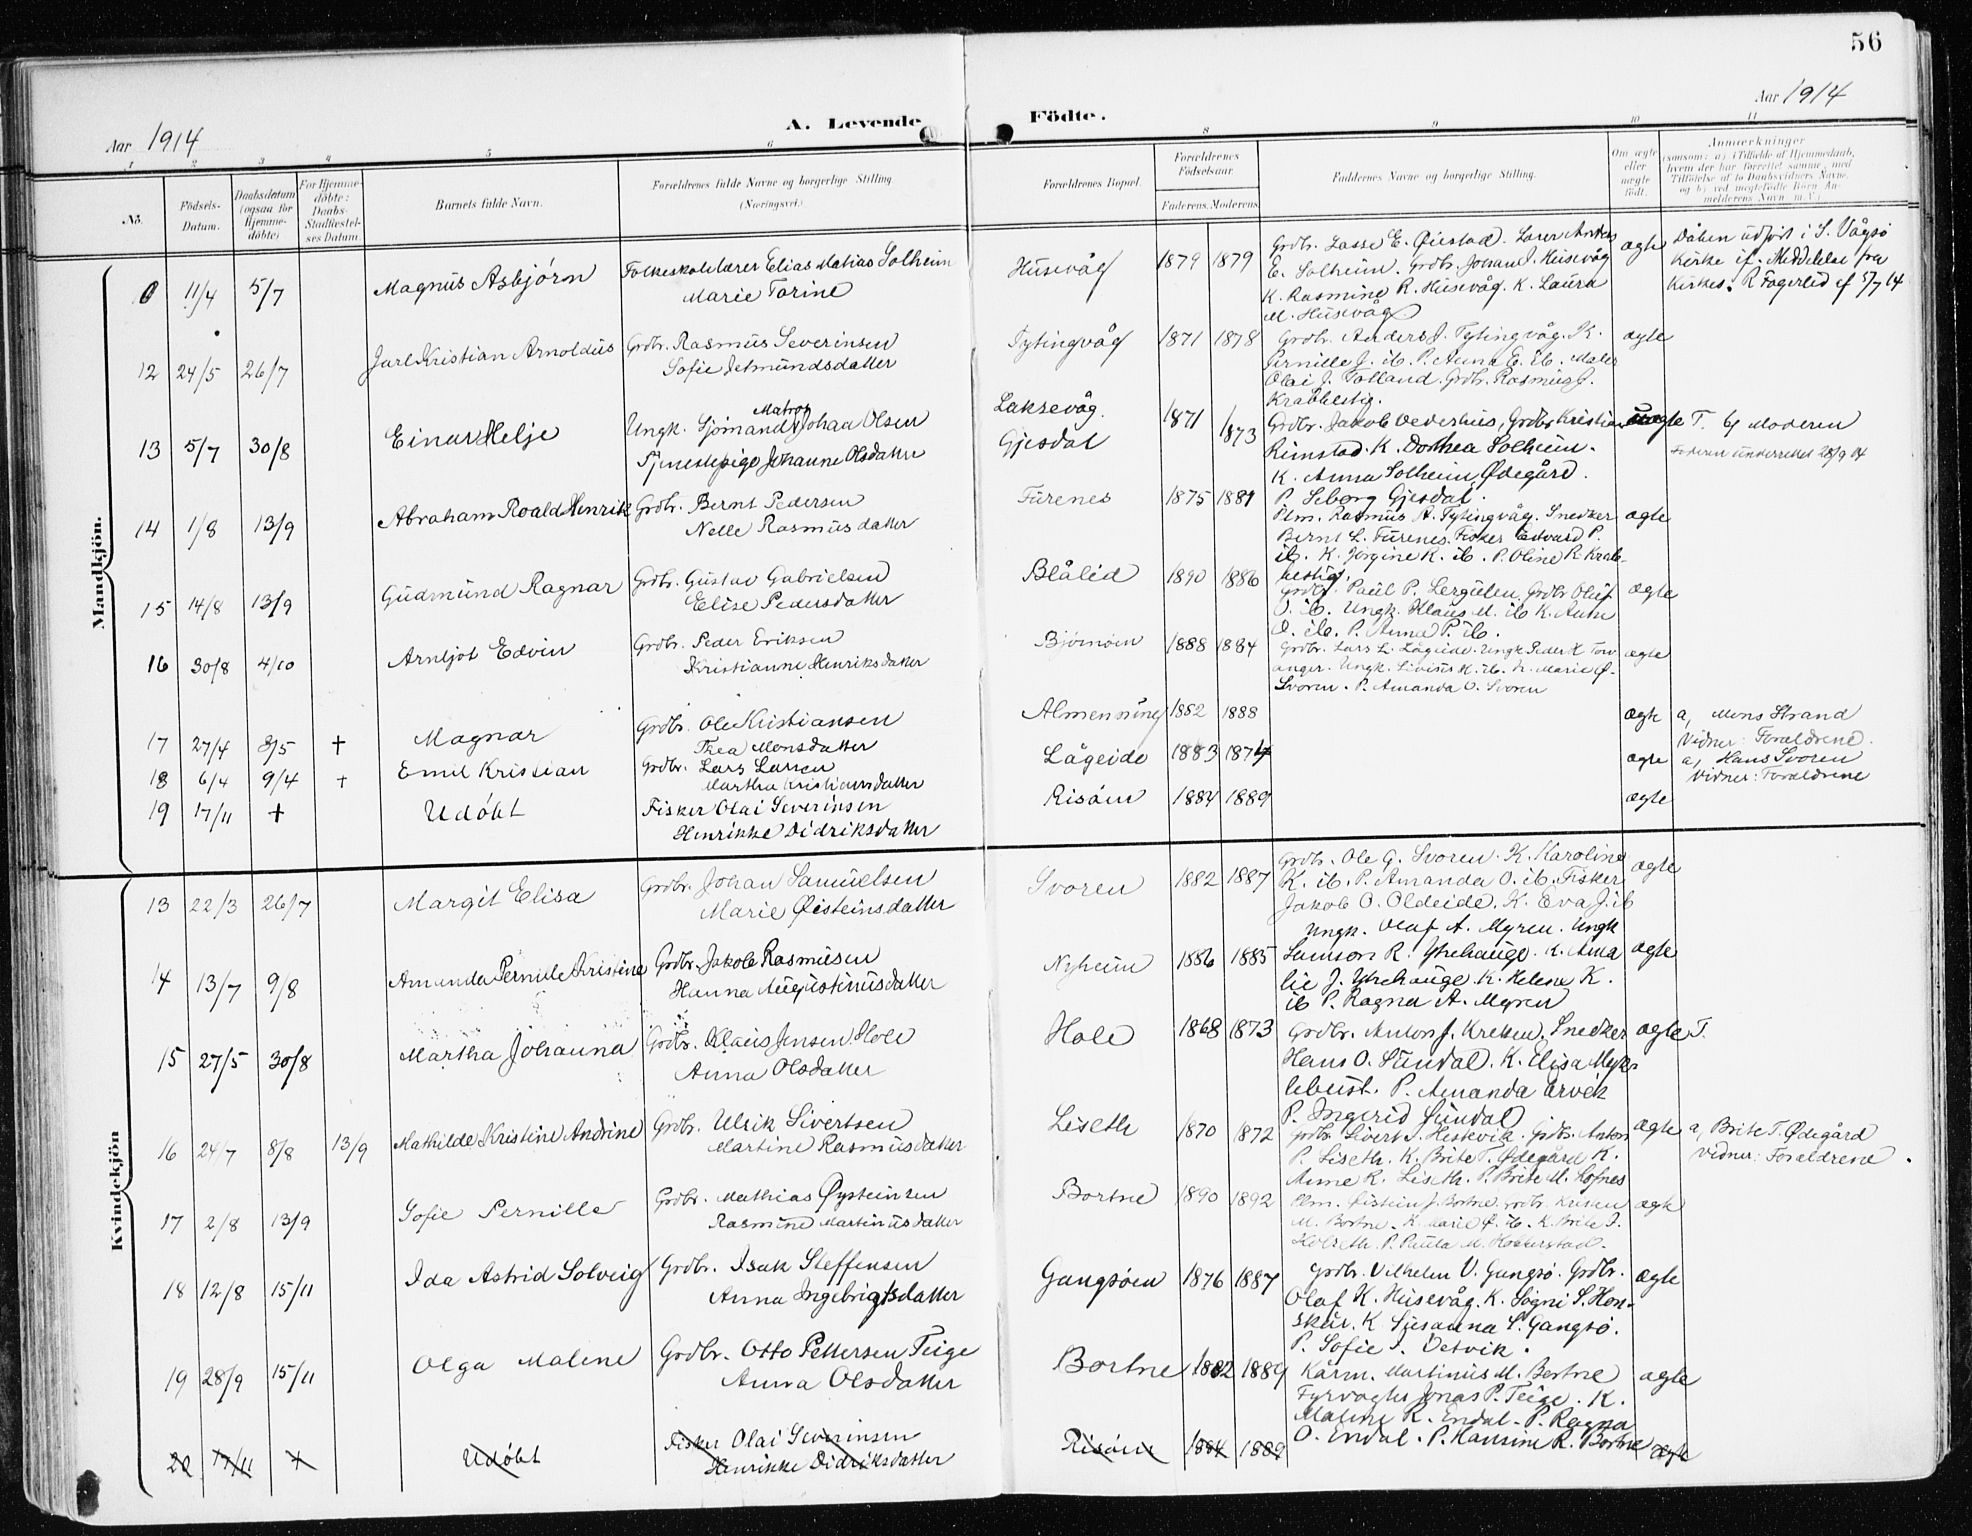 56
Aar 1914
A. Levende
Födte.
Aar 1914
1 2 3 4 5 6 8 9 10 11
No.
Födsels-
Datum.
Daabsdatum
(ogsaa for
Hjemme-
døbte)
For Hjemme-
døbte:
Daabs-
Stadfæstel-
ses Datum.
Barnets fulde Navn.
Forældrenes fulde Navne og borgerlige Stilling.
(Næringsvei).
Forældrenes Bopæl.
Forældrenes
Födselsaar.
Faderens. Moderens.
Faddernes Navne og borgerlige Stilling.
Om ægte
eller
uægte
født.
Anmærkninger
(saasom: a) i Tilfælde af Hjemmedaab,
hvem der har forrettet samme, med
Tilføielse af to Daabsvidners Navne,
og b) ved uægtefødte Børn An-
melderens Navn m. V.)
Mandkjön.
11/4 5/7 Magnus Asbjørn
Folkeskolelærer Elias Matias Solheim
Marie Torine
Husevåg 1879 1879
Grdbr. Lasse E. Øiestad. Lærer Anders
E. Solheim. Grdbr. Johan J. Husevåg
K. Rasmine R. Husevåg. K. Laura
M. Husevåg
ægte
Dåben udført i S. Vågsø
Kirke if. Meddelelse fra
Kirkes. R Fagerlid af 5/7 14
12 24/5 26/7 Jarl Kristian Arnoldus
Grdbr. Rasmus Severinsen
Sofie Jetmundsdatter
Tytingvåg 1871 1878
Grdbr. Anders J. Tytingvåg. K.
Pernille J. ib. P. Anna E. ib. Maler
Olai J. Totland. Grdbr. Rasmus J.
Krabbestig.
ægte
13 5/7 30/8 Einar Helje
Ungk. Sjömand Matros Johan Olsen
Tjenestepige Johanne Olsdatter
Laksevåg.
Gjesdal
1871 1873
Grdbr. Jakob Vederhus, Grdbr Kristian
Rimstad. K. Dorthea Solheim.
K. Anna Solheim, Ødegård.
P. Seborg Gjesdal.
uægte
T. b) Moderen
Faderen underrettet 28/9 14
14 1/8 13/9 Abraham Roald Henrik
Grdbr. Bernt Pedersen
Nelle Rasmusdatter
Furenes 1875 1881
Plm. Rasmus A. Tytingvåg. Snedker
Bernt L. Furenes. Fisker Edvard P.
ib. K. Jorgine K. ib. P. Oline R. Krab-
bestig.
ægte
15 14/8 13/9 Gudmund Ragnar
Grdbr. Gustav Gabrielsen
Elise Pedersdatter
Blålid 1890 1886
Grdbr. Paul P. Lergulen, Grdbr Oluf
O. ib. Ungk. Klaus M. ib K. Anne
O. ib. P. Anna P. ib.
ægte
16 30/8 4/10 Arnljot Edvin
Grdbr. Peder Eriksen
Kristianne Henriksdatter
Bjørnøen 1888 1884
Grdbr. Lars L. Lågeide. Ungk Peder K Tow
anger. Ungk. Livius K. ib. K. Marie Ø.
Svoren. P. Amanda O. Svoren
ægte
17 27/4 8/5 + Magnar
Grdbr. Ole Kristiansen
Thea Monsdatter
Almenning 1882 1888
ægte
a, Mons Strand
Vidner: Forældrene.
18 6/4 9/4 + Emil Kristian
Grdbr. Lars Larsen
Martha Kristiansdatter
Lågeide 1883 1874
ægte
a, Hans Svoren
Vidner: Forældrene
19 17/11 + Udøbt
Fisker Olai Severinsen
Henrikke Didriksdatter
Risöin 1884 1889
ægte
Kvindekjön
13 22/3 26/7 Margit Elisa
Grdbr. Johan Samuelsen
Marie Øisteinsdatter
Svoren 1882 1887
Grdb. Ole G. Svoren. K. Karoline
K. ib. P. Amanda O. ib. Fisker
Jakob O. Oldeide. K. Eva J. ib
ægte
14 13/7 9/8 Amanda Pernille Kristine
Grdbr. Jakob Rasmusen
Hanna Augustinusdatter
Nyheim 1886 1885
Ungk. Olaf A. Myren. Ungk
Samson R. Ytrehauge. K. Ama
lie J. Ytrehauge. K. Helene K.
ib P. Ragna A. Myren
ægte
15 27/5 30/8 Martha Johanna
Grdbr. Klaus Jensen Hole
Anna Olsdatter
Hole 1868 1873
Grdbr. Anton J. Kreken, Snedker
Hans O. Sundal. K. Elisa Myk-
lebust. P. Amanda Ervik
P. Ingerid Sundal
ægte T.
16 24/7 8/8 13/9 Mathilde Kristine Andrine
Grdbr. Ulrik Sivertsen
Martine Rasmusdatter
Liseth 1870 1872
Grdbr. Sivert S. Heskvik. Grdbr. Anton
P. Liseth. K. Brite T. Ødegård K.
Anne R. Liseth. P. Brite M. Hofnes
ægte
a, Brite T. Ødegård
Vidner: Forældrene.
17 2/8 13/9 Sofie Pernille
Grdbr. Mathias Øysteinsen
Rasmine Martinusdatter
Bortne 1890 1892
Plm. Øistein J. Bortne. Grdbr. Kristen
M. Bortne. K. Marie Ø. ib. K. Brite I.
Holseth. P. Paula M. Hokkerstad.
ægte
18 12/8 15/11 Ida Astrid Solveig
Grdbr. Isak Steffensen
Anna Ingebrigtsdatter
Gangsöen 1876 1887
Grdbr. Vilhelm V. Gangsö. Grdbr.
Olaf K. Husevåg. K. Sogni S. Hon-
skur. K Susanna S. Gangsö.
P. Sofie J. Vetvik.
ægte
19 28/9 15/11 Olga Malene
Grdbr. Otto Pettersen Teige
Anna Olsdatter
Bortne 1882 1889
Kårm. Martinus M. Bortne
Fyrvogter Jonas P. Teige. K.
Malene R. Endal. P. Ragna
O. Endal. P. Hansine R. Bortne
ægte
20 17/11 + Udøbt
Fisker Olai Severinsen
Henrikke Didriksdatter
Risöin 1884 1889
ægte